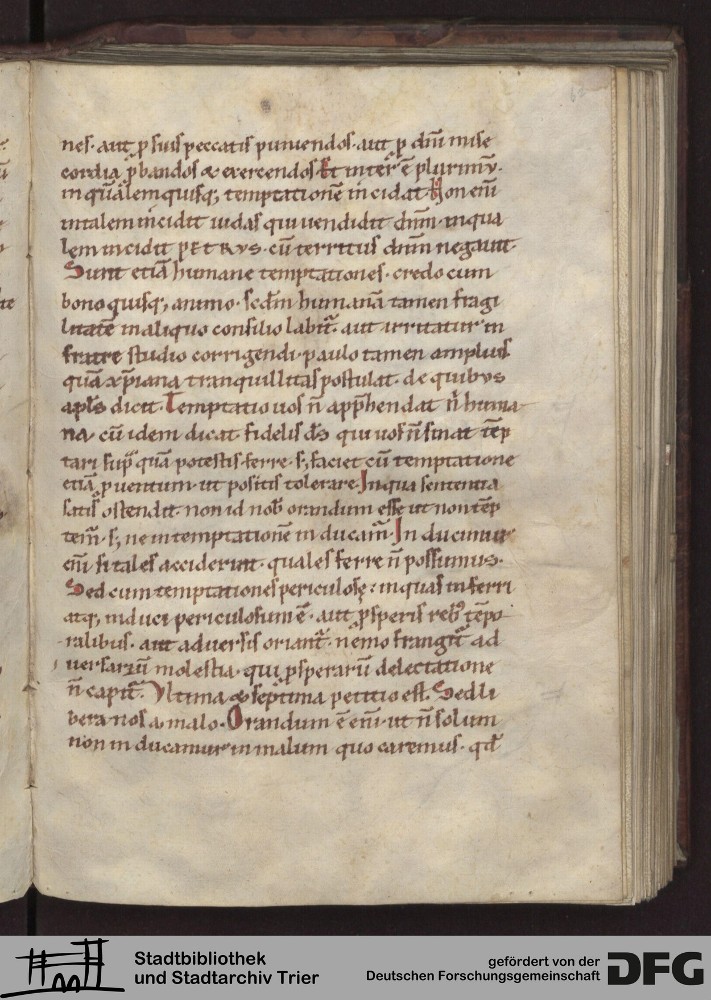 nes· aut ꝓ suis peccatis puniendos· aut ꝓ dn̄i mise
cordia ꝓbandos & exercendos Et inter ē plurimū·
in quālem quisq; temptationē incidat Non enī
in talem incidit iudas qui uendidit dn̄m· in qua
lem incidit PETRVS· cū territus dn̄m negauit·
Sunt etiā humane temptationes· credo cum
bono quisq; animo· scd̄m humanā tamen fragi
litatē in aliquo consilio labit̄· aut irritatur in
fratrē studio corrigendi· paulo tamen amplius
quā xp̄iana tranquillitas postulat· de quibvs
apl̄s dicit· Temptatio uos n̄ app̄hendat n̄ huma
na· cū idem dicat fidelis d̄s qui uos n̄ sinat tēp
tari sup̄ quā potestis ferre· s; faciet cū temptatione
etiā ꝓuentum· ut possitis tolerare· In qua sententia
satis ostendit· non id nob̄ orandum esse ut non tēp
tem̄· s; ne in temptationē inducam̄· Inducimur
enī si tales acciderint· quales ferre n̄ possumus·
Sed cum temptationes periculosę· in quas inferri
atq; induci periculosum ē· aut ꝓsperis reb; tēpo
ralibus· aut aduersis oriant̄· nemo frangit̄ ad
uersarū molestia· qui ꝓsperarū delectatione
n̄ capit̄· Vltima & septima petitio est· Sed li
bera nos a malo· Orandum ē enī· ut n̄ solum
non inducamur in malum quo caremus· qd̄
Stadtbibliothek
und Stadtarchiv Trier
gefördert von der
Deutschen Forschungsgemeinschaft
DFG